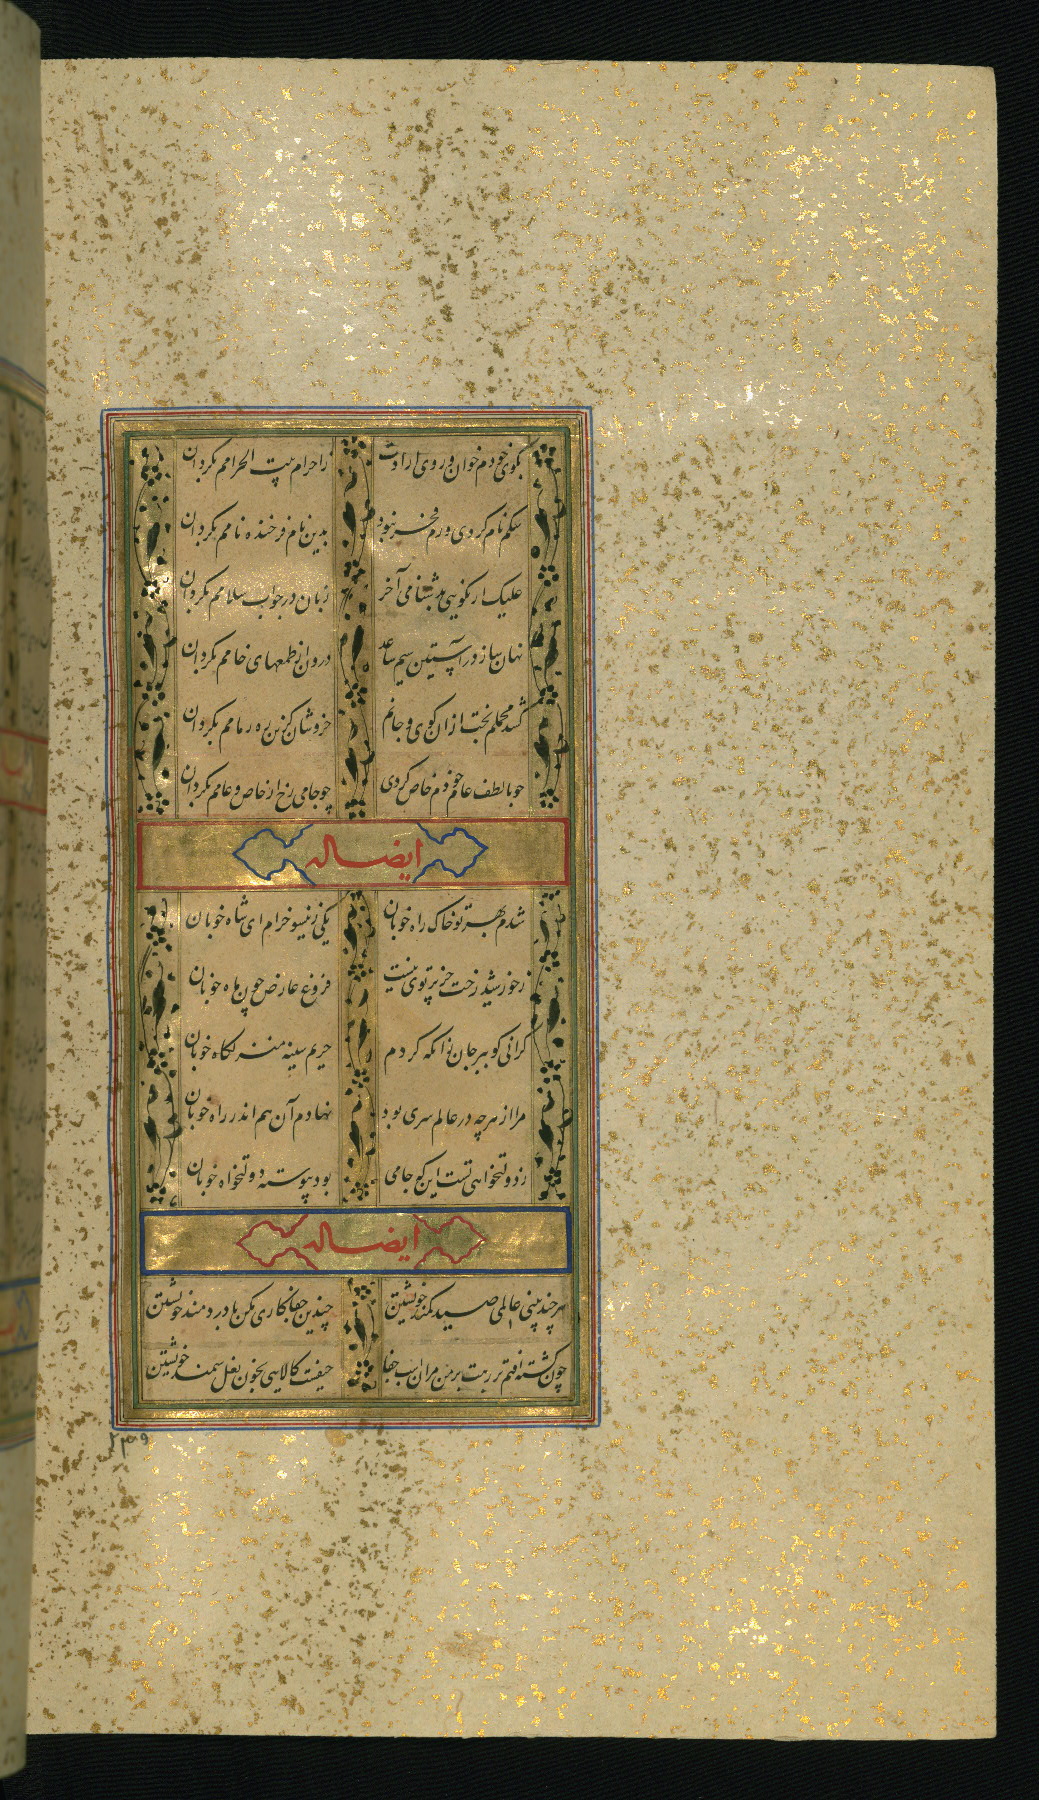 بکوی خودم خوان و روی ارادت ز احرام بیت الحرامم بگردان
سکم نام کردی ورم فخر نبود بدین نام فرخنده نامم بگردان
علیک ار نکویی بدشنامی آخر زبان در جواب سلامم بگردان
نهان ساز در آستین سیم ساعد درون از طمعهای خامم بگردان
کشد محملم بخت ازان کوی و جانم خروشان کزین ره زمامم بگردان
چو با لطف عام خودم خاص کردی چو جامی رخ از خاص و عامم بگردان
ایضا له
شدم بهر تو خاک راه خوبان یکی زینسو خرام ای شاه خوبان
ز خورشید رخت جز پرتوی نیست فروغ عارض چون ماه خوبان
کرانی کو ببر جان زانکه کردم حریم سینه منزلکاه خوبان
مرا از هرچه در عالم سری بود نهادم آن هم اندر راه خوبان
ز دولتخواهی تست این که جامی بود پیوسته دولتخواه خوبان
ایضا له
هر چند بینی عالمی صید کمند خویشتن چندین جفاکاری مکن با دردمند خویشتن
چون کشته افتم بر رهت بر من مران اسب جفا حیفست کالایی بخون نعل سمند خویشتن